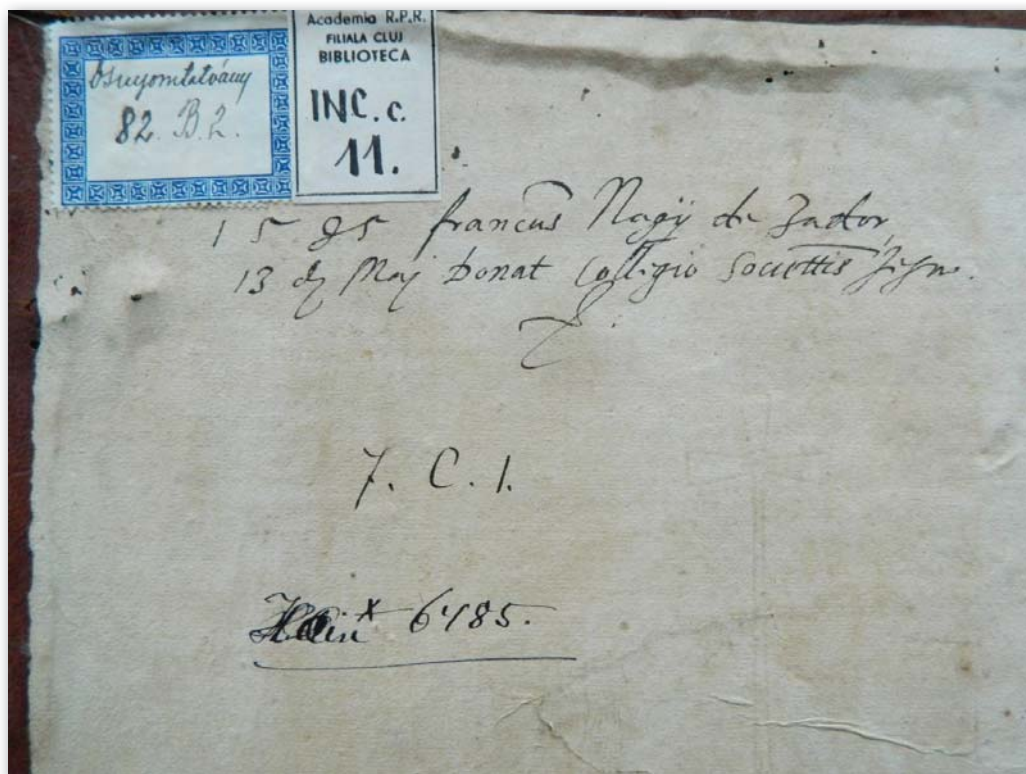 Ősnyomtatvány
82. B. 2.
Academia R.P.R.
FILIALA CLUJ
BIBLIOTECA
INC. c.
11.
1585 francus Nagÿ de Zador
13 dy Maj Donat Collegio Societtis Jesu.
7. C. 1.
Hain x 6485.